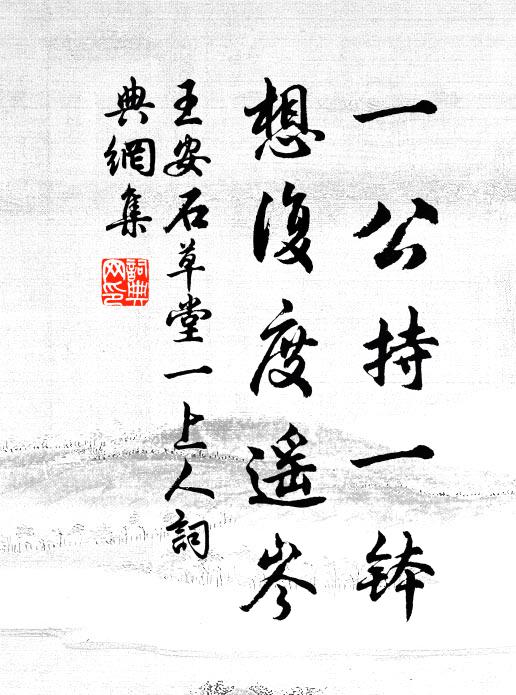 一公持一鉢
想復度遥岑
王安石草堂一上人詞
典網集
詞典網印